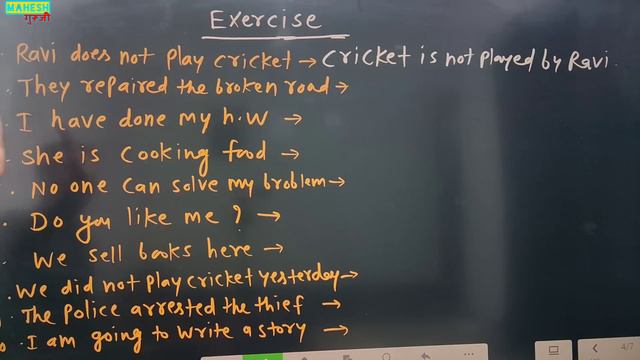 MAHESH
गुरुजी
Exercise
Ravi does not play cricket → Cricket is not played by Ravi.
They repaired the broken road →
I have done my h.w →
She is cooking food →
No one can solve my broblem →
Do you like me ? →
We sell books here →
We did not play cricket yesterday →
The police arrested the thief →
I am going to write a story →
4/7